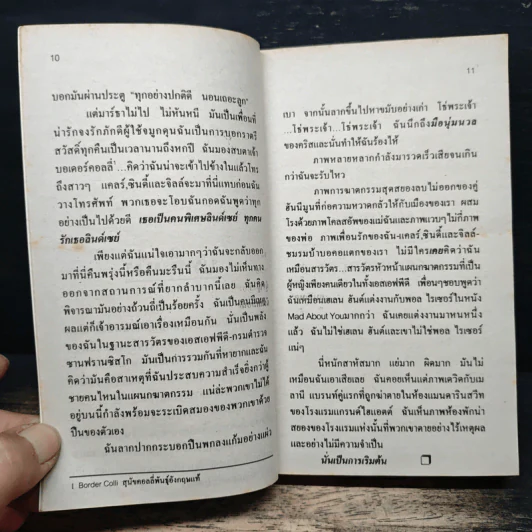 10
บอกมันผ่านประตู "ทุกอย่างปกติดี นอนเถอะลูก"
แต่มาร์ธาไม่ไป ไม่หันหนี มันเป็นเพื่อนที่
น่ารักจงรักภักดีผู้ใช้จมูกดุนฉันเป็นการบอกราตรี
สวัสดิ์ทุกคืนเป็นเวลานานถึงหกปี ฉันมองสบตาเจ้า
บอเดอร์คอลลี่¹...คิดว่าฉันน่าจะเข้าไปข้างในแล้วโทร
ถึงสาวๆ แคลร์,ซินดี้และจิลล์จะมาที่นี่แทบก่อนฉัน
วางโทรศัพท์ พวกเธอจะโอบฉันกอดฉันพูดว่าทุก
อย่างเป็นไปด้วยดี เธอเป็นคนพิเศษลินด์เซย์ ทุกคน
รักเธอลินด์เซย์
เพียงแต่ฉันแน่ใจเอามากๆว่าฉันจะกลับออก
มาที่นี่คืนพรุ่งนี้หรือคืนมะรืนนี้ ฉันมองไม่เห็นทาง
ออกจากสถานการณ์ที่ยากลำบากนี้เลย ฉันคิด
พิจารณามันอย่างถ้วนถี่เป็นร้อยครั้ง ฉันเป็นคนมีเหตุ
ผลแต่ก็เจ้าอารมณ์เอาเรื่องเหมือนกัน นั่นเป็นพลัง
ของฉันในฐานะสารวัตรของเอสเอฟพีดี-กรมตำรวจ
ซานฟรานซิสโก มันเป็นการรวมกันที่หายากและฉัน
คิดว่ามันคือสาเหตุที่ฉันประสบความสำเร็จยิ่งกว่าผู้
ชายคนไหนในแผนกฆาตกรรม แน่ล่ะพวกเขาไม่ได้
อยู่บนนี้กำลังพร้อมจะระเบิดสมองของพวกเขาด้วย
ปืนของตัวเอง
ฉันลากปากกระบอกปืนพกลงแก้มอย่างแผ่ว
1 Border Colli สุนัขคอลลี่พันธุ์อังกฤษแท้
11
เบา จากนั้นลากขึ้นไปหาขมับอย่างเก่า โธ่พระเจ้า
...โธ่พระเจ้า...โธ่พระเจ้า ฉันนึกถึงมือนุ่มนวล
ของคริสและนั่นทำให้ฉันร้องไห้
ภาพหลายหลากกำลังมารวดเร็วเสียจนเกิน
กว่าฉันจะรับไหว
ภาพการฆาตกรรมสุดสยองลบไม่ออกของคู่
ฮันนีมูนที่ก่อความหวาดกลัวให้กับเมืองของเรา ผสม
โรงด้วยภาพโคลสอัพของแม่ฉันและภาพแวบๆไม่กี่ภาพ
ของพ่อ ภาพเพื่อนรักของฉัน-แคลร์,ซินดี้และจิลล์-
ชมรมบ้าบอคอแตกของเรา ไม่มีใครเคยคิดว่าฉัน
เหมือนสารวัตร...สารวัตรหัวหน้าแผนกฆาตกรรมที่เป็น
ผู้หญิงเพียงคนเดียวในทั้งเอสเอฟพีดี เพื่อนๆชอบพูดว่า
ฉันเหมือนเฮเลน ฮันต์แต่งงานกับพอล ไรเซอร์ในหนัง
Mad About Youมากกว่า ฉันเคยแต่งงานมาหนหนึ่ง
แล้ว ฉันไม่ใช่เฮเลน ฮันต์และเขาไม่ใช่พอล ไรเซอร์
แน่ๆ
นี่หนักสาหัสมาก แย่มาก ผิดมาก มันไม่
เหมือนฉันเอาเสียเลย ฉันคอยเห็นแต่ภาพเดวิดกับเม
ลานี แบรนท์คู่แรกที่ถูกฆ่าตายในห้องแมนดารินสวีท
ของโรงแรมแกรนด์ไฮแอตต์ ฉันเห็นภาพห้องพักน่า
สยองของโรงแรมแห่งนั้นที่พวกเขาตายอย่างไร้เหตุผล
และอย่างไม่มีความจำเป็น
นั่นเป็นการเริ่มต้น